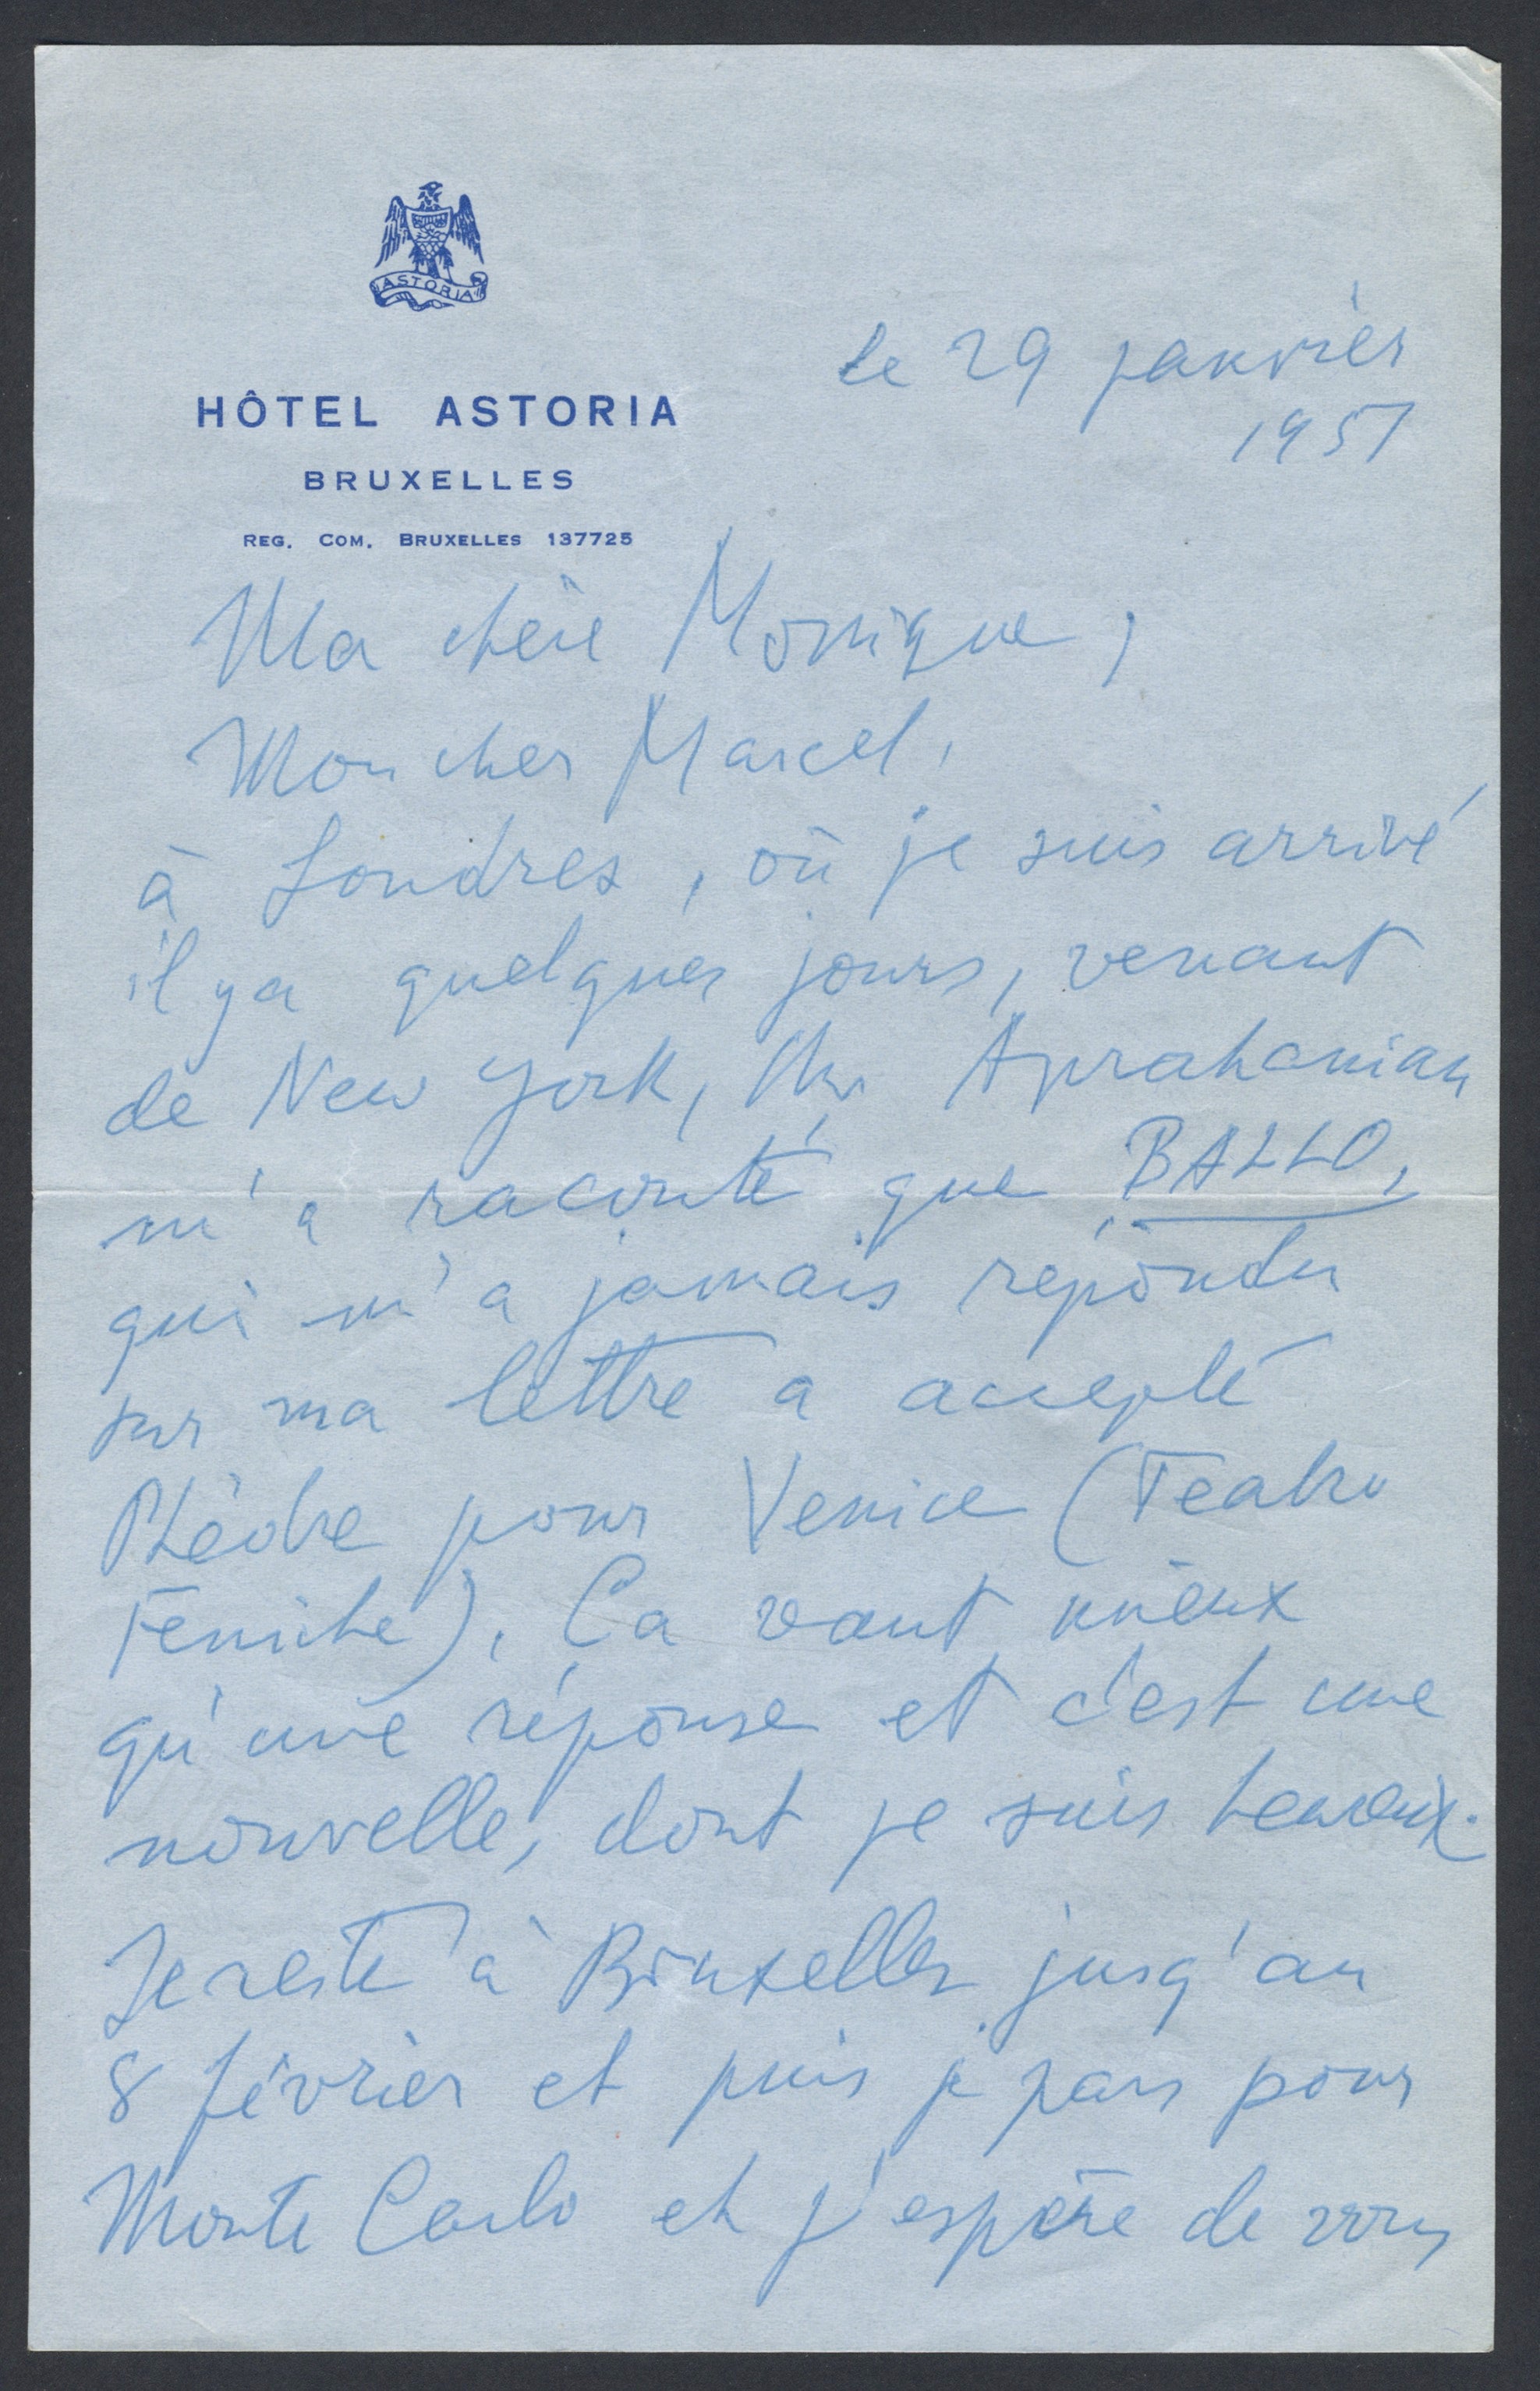 ASTORIA
HÔTEL ASTORIA
BRUXELLES
REG. COM. BRUXELLES 137725
le 29 janvier
1951
Ma chère Monique,
Mon cher Marcel,
à Londres, où je suis arrivé
il y a quelques jours, venant
de New York, Mr. Aprahamian
m'a raconté que BALLO,
qui m'a jamais répondu
sur ma lettre a accepté
Phèdre pour Venice (Teatro
Feniche). Ca vaut mieux
qu'une réponse et c'est une
nouvelle, dont je suis heureux.
Je reste à Bruxelles jusq'au
8 février et puis je pars pour
Monte Carlo et j'espère de vous